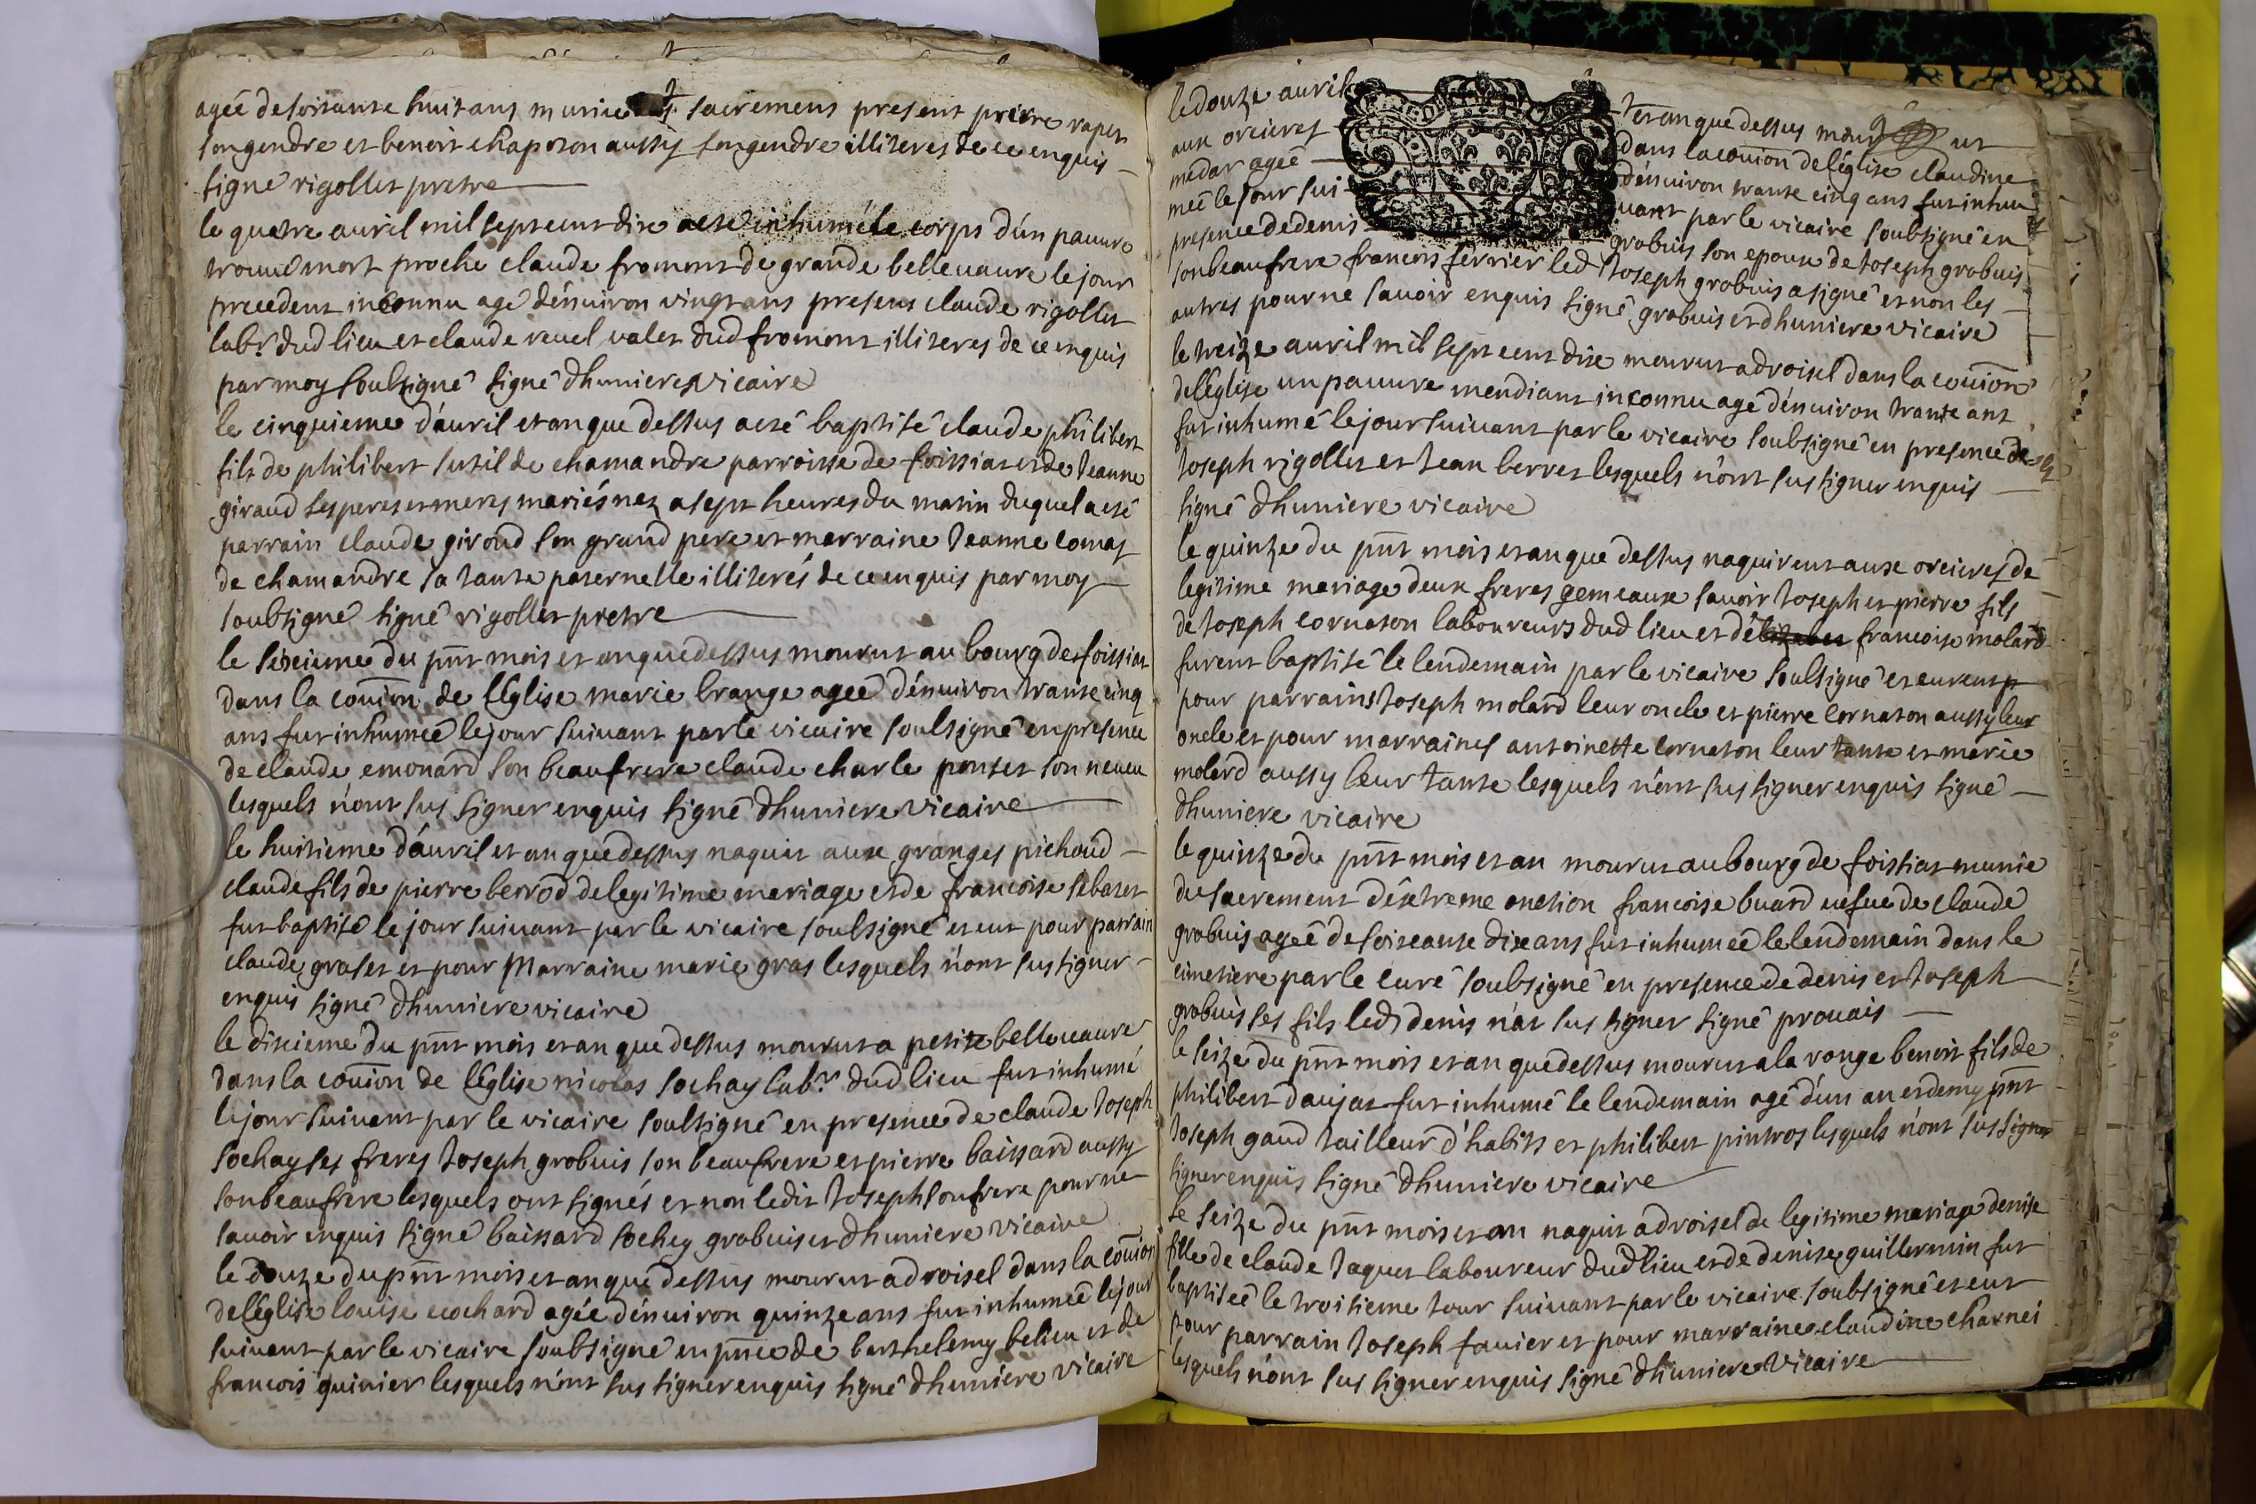 agée de soixante huit ans munie des sacremens present pierre rapet
son gendre et benoit chaposon aussy son gendre illiteres de ce enquis
signé rigollet pretre
le quatre auril mil sept cent dix a esté inhumé le corps d'un pauure
trouué mort proche claude froment de grande belleuaure le jour
precedent inconnu agé d'enuiron vingt ans presens claude rigollet
labr. dud lieu et claude reuel valet dud froment illiteres de ce enquis
par moy soubsigné signé dhumiere vicaire
le cinquieme d'auril et an que dessus a esté baptisé claude philibert
fils de philibert sutil de chamandre parroisse de foissiat et de Jeanne
giraud ses peres et meres mariés nez a sept heures du matin duquel a esté
parrain claude giroud son grand pere et marraine Jeanne comas
de chamandre sa tante paternelle illiterés de ce enquis par moy
soubsigné signé rigollet pretre
le sixieme du pnt mois et an que dessus mourut au bourg de foissiat
dans la coñion de l'Eglise marie brange ageé d'enuiron trante cinq
ans fut inhumeé le jour suiuant par le vicaire soubsigné en presence
de claude emonard son beaufrere claude charle ponset son neueu
lesquels n'ont sus signer enquis signé dhumiere vicaire
le huitieme d'auril et an que dessus naquit aux granges pichoud
claude fils de pierre berrod de legitime mariage et de francoise sebaset
fut baptisé le jour suiuant par le vicaire soubsigné et eut pour parrain
claude graset et pour Marraine marie gras lesquels n'ont sus signer
enquis signé dhumiere vicaire
le dixieme du pnt mois et an que dessus mourut a petite belleueaure
dans la coñion de l'Eglise nicolas sochay labr. dud lieu fut inhumé
le jour suiuant par le vicaire soubsigné en presence de claude Joseph
sochay ses freres Joseph grobuis son beaufrere et pierre baissard aussy
son beaufrere lesquels ont signés et non ledit Joseph son frere pour ne
sauoir enquis signé baissard sochey grobuis et dhumiere vicaire
le douze du pnt mois et an que dessus mourut a droisel dans la coñion
de l'église louise cochard agée d'enuiron quinze ans fut inhumeé le jour
suiuant par le vicaire soubsigné en pnce de barthelemy belieu et de
francois guinier lesquels n'ont sus signer enquis signé dhumiere vicaire
le douze auril et an que dessus mourut
aux orcieres dans la coñion de l'église claudine
medar ageé d'enuiron trante cinq ans fut inhu
meé le jour suiuant par le vicaire soubsigné en
presence de denis grobuis son epoux de Joseph grobuis
son beaufrere francois ferrier led Joseph grobuis a signé et non les
autres pour ne sauoir enquis signé grobuis et dhumiere vicaire
le treize auril mil sept cent dix mourut a droisel dans la coñion
de l'église un pauure mendiant inconnu agé d'enuiron trante ans
fut inhumé le jour suiuant par le vicaire soubsigné en presence de
Joseph rigollet et Jean berret lesquels n'ont sus signer enquis
signé dhumiere vicaire
le quinze du pnt mois et an que dessus naquirent aux orcieres de
legitime mariage deux freres gemeaux sauoir Joseph et pierre fils
de Joseph cornaton laboureurs dud lieu et de francoise molard
furent baptisé le lendemain par le vicaire soubsigné et eurent
pour parrains Joseph molard leur oncle et pierre cornaton aussy leur
oncle et pour marraines antoinette cornaton leur tante et marie
molard aussy leur tante lesquels n'ont sus signer enquis signé
dhumiere vicaire
le quinze du pnt mois et an mourut au bourg de foissiat munie
du sacrement d'éxtreme onction francoise buard uefue de claude
grobuis ageé de soixeante dix ans fut inhumeé le lendemain dans le
cimetiere par le curé soubsigné en presence de denis et Joseph
grobuis ses fils led denis n'at sus signer signé prouais
le seize du pnt mois et an que dessus mourut a la ronge benoit fils de
philibert daujat fut inhumé le lendemain agé d'un an et demy pnt
Joseph gaud tailleur d'habits et philibert pintros lesquels n'ont sus signer
signer enquis signé dhumiere vicaire
le seize du pnt mois et an naquit a droisel de legitime mariage denise
fille de claude Jaquet laboureur dud lieu et de denise guillermin fut
baptiseé le troisieme Jour suiuant par le vicaire soubsigné et eut
pour parrain Joseph fauier et pour marraine claudine charnei
lesquels n'ont sus signer enquis signé dhumiere vicaire